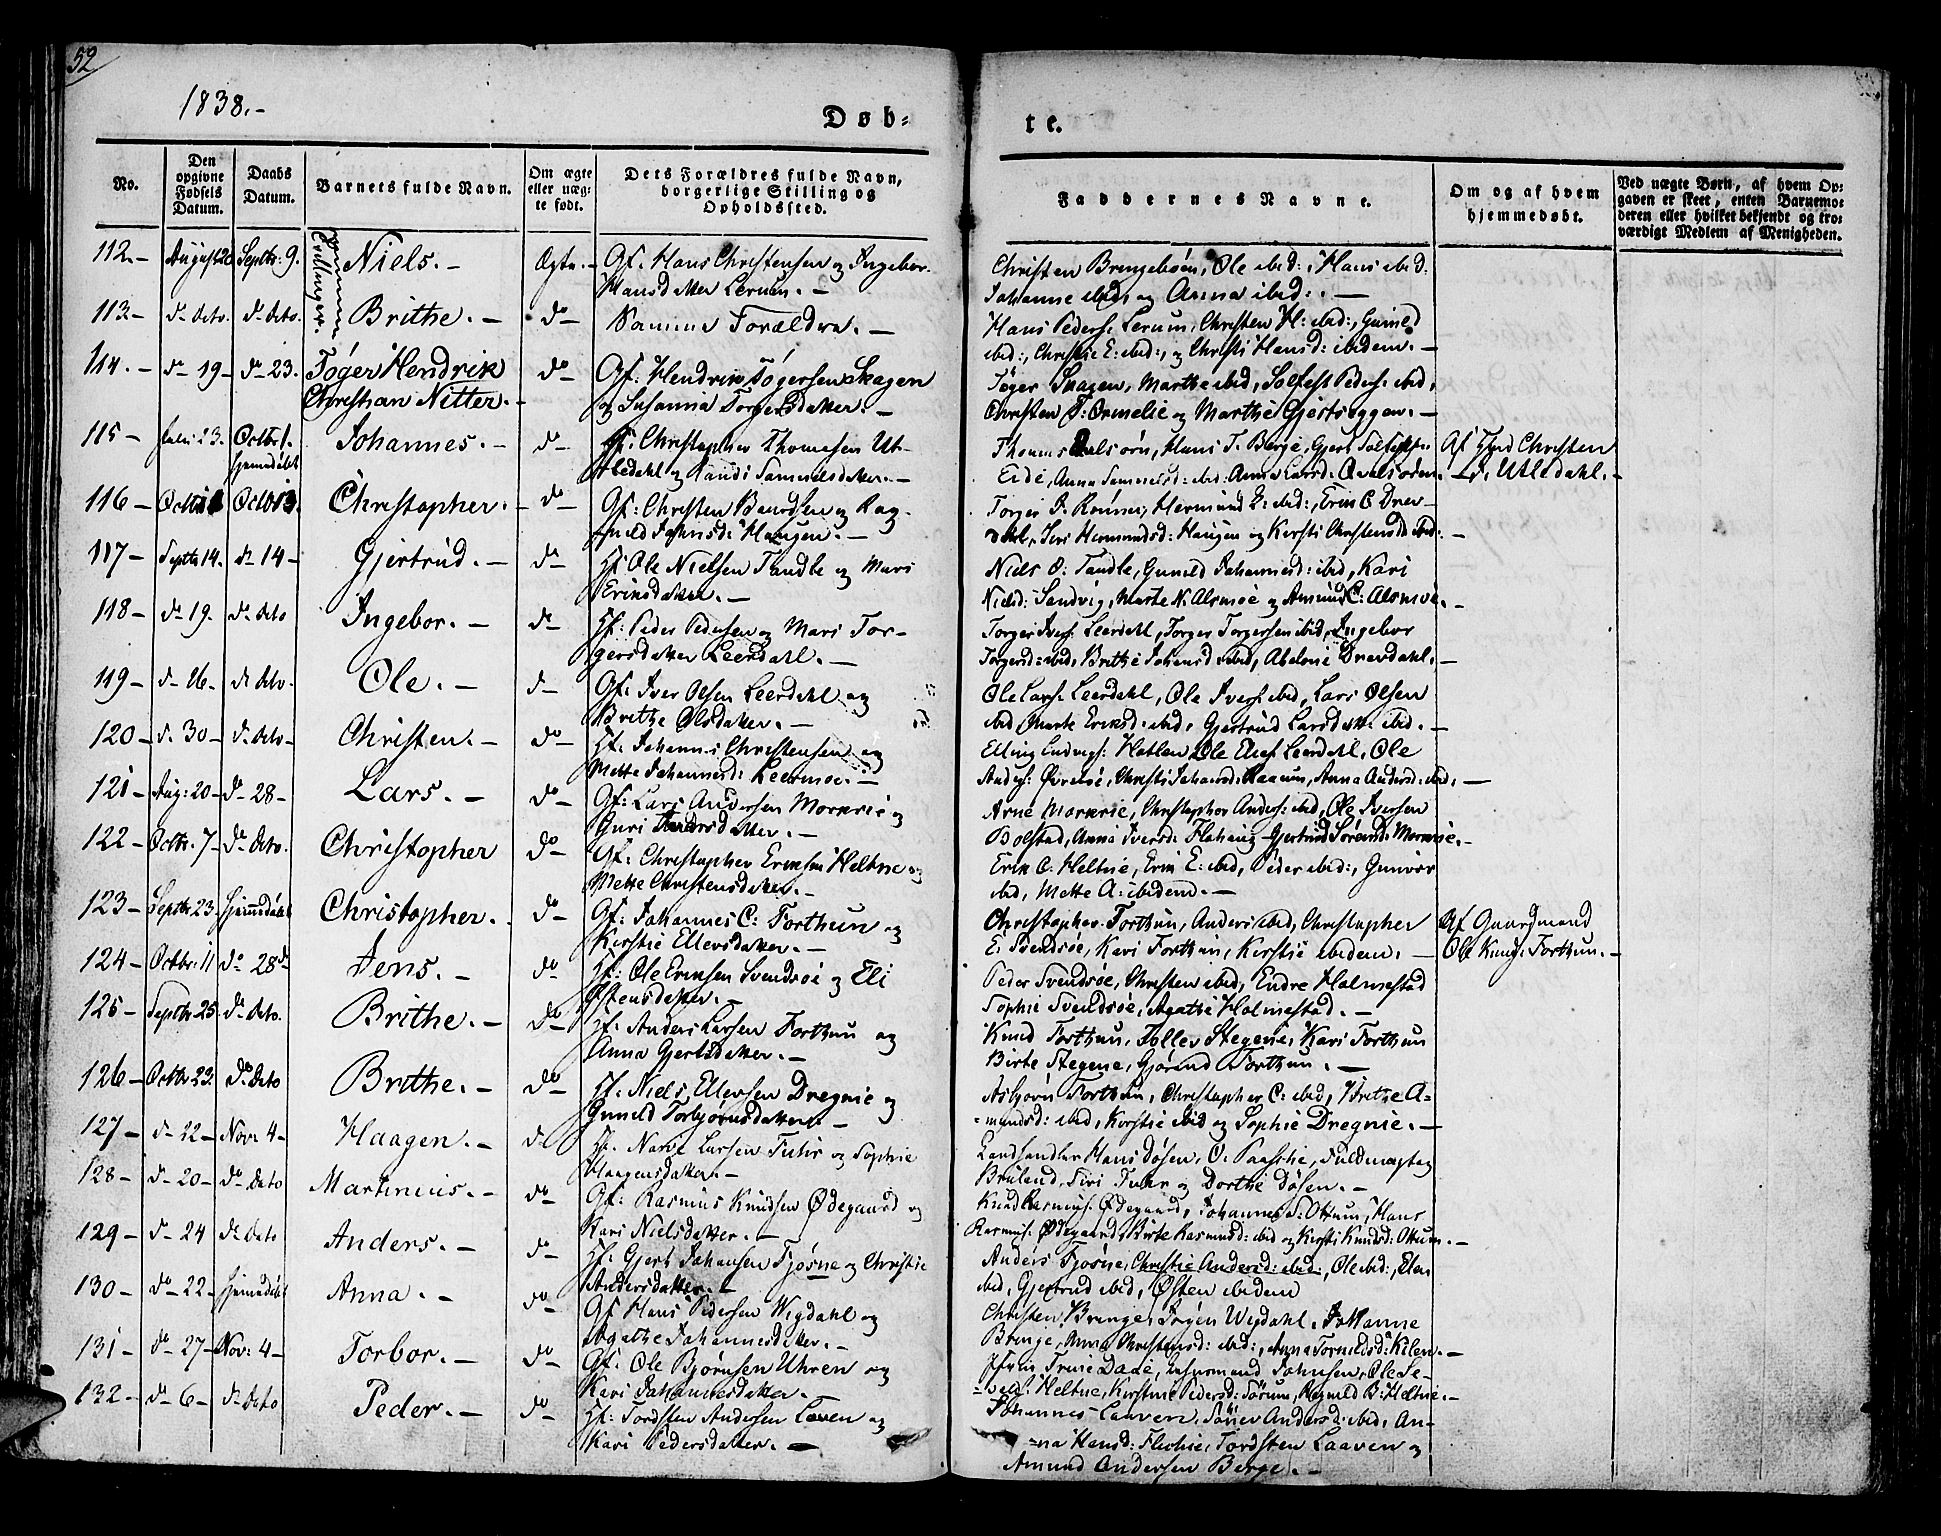 52
1838.-
Døb-
te.
No.
Den opgivne Fødsels Datum.
Daabs Datum.
Barnets fulde Navn.
Om ægte eller uægte født.
Dets Forældres fulde Navn, borgerlige Stilling og Opholdssted.
Faddernes Navne.
Om og af hvem hjemmedøbt.
Ved uægte Børn, af hvem Opgaven er skeet, enten Barnemoderen eller hvilket bekjendt og troværdigt Medlem af Menigheden.
112.- August 20 Septbr: 9. Tvillinger. Niels.- Ægte.- Gf. Hans Christensen og Ingebor
Hansdatter Lerum.-
Christen Bringebøen, Ole ibid:, Hans ibid:
Johanne ibid, og Anna ibid:.-
113- do Dito. do Dito. Brithe.- do- Samme Forældre.-
Hans Peders: Lerum, Christen H: ibid:, Gunild
ibid:, Christie E: ibid:, og Christi Hansd: ibidem.-
114.- do 19- do 23. Tøger Hendrik do- Gf: Hendrik Tøgersen Skagen
Christian Nitter.- og Susanna Torgersdatter.-
Tøger Skagen, Marthe ibid, Solfest Peders: ibid,
Christen T: Ormelie og Marthe Gjertseggen.-
115- 23. Octbr 1. hjemmedøbt Johannes.- do- Hf: Christopher Thomasen Ut-
ledahl og Randi Samuelsdatter.-
Thomas Qvalsøen, Hans T. Berge, Gjert Solfests:
Eide, Anna Samuelsd: ibid: Anna Larsd: Qvalsøden.-
Af Christen
Utledahl.-
116- Octbr Octbr 13. Christopher.- do- Gf: Christen Baardsen og Rag-
nild Johnsd: Haugen.-
Torger O. Rønnei, Hermund ibid:, Erik O Drev-
dahl, Siri Hermundsd: Haugen og Kirsti Christensd ibid:.-
117- Septbr 14. do 14- Gjertrud.- do- Hf: Ole Nielsen Tandle og Mari
Eriksdatter.-
Niels O: Tandle, Gunild Johannesd: ibid, Kari
Nielsd: Sandvig, Marte N. Alsmoe og Amund C: Alsmoe.-
118- do 19. do Dito Ingebor.- do- Hf: Peder Pedersen og Mari Tor-
gersdatter Leerdahl.-
Torger Ivers: Leerdahl, Torger Torgersen ibid, Ingebor
Torgersd: ibid, Brithe Johansd: ibid, Abelone Drevdahl.-
119- do 26. do Dito. Ole.- do- Gf: Iver Olsen Leerdahl og
Brithe Olsdatter.-
Ole Lars: Leerdahl, Ole Ivers: ibid, Lars Olsen
ibid, Marte Eriksd: ibid, Gjertrud Larsdatr. ibid.-
120- do 30- do Dito- Christen.- do- Hf. Johannes Christensen og
Mette Johannesd: Leermoe.-
Elling Ludvigs: Hatlen, Ole Leerdahl, Ole
Anders: Øvrebøe, Christi Johansd: Raaum, Anna Andersd: ibid.-
121- Aug: 20- do 28- Lars.- do- Gf: Lars Andersen Morkrie og
Guri datter.-
Arne Morkrie, Christopher Anders: ibid, Ole Iversen
Bolstad, Anna Iversd: Flahaug, Gjertrud Sørend: Morkrie.-
122- Octbr. 7- do Dito. Christopher do- Gf: Christopher Eriksen Heltne og
Mette Christensdatter.-
Erik C: Heltne, Erik E: ibid, Peder ibid:, Gunvør
ibid, Mette A: ibidem.-
123- Septbr 23. hjemmedøbt Christopher.- do- Gf: Johannes C: Forthun og
Kirstie Ellersdatter.-
Christopher Forthun, Anders ibid, Christopher
E: Svendsøe, Kari Forthun, Kirstie ibidem.-
Af Gaardmand
Ole Knuds: Forthun.-
124- Octbr: 11 do 28de Jens.- do Hf: Ole Eriksen Svendsøe og Eli
Østensdatter.-
Peder Svendsøe, Christen ibid, Endre Holmestad
Sophie Svendsøe, Agathe Holmestad.-
125- Septbr 25. do Dito. Brithe.- do- Hf. Anders Larsen Forthun og
Anna Gjertsdatter.-
Knud Forthun, Tollev Stegene, Kari Forthun
Birte Stegene, Gjørend Forthun.-
126- Octbr 23. do Dito Brithe.- do- Hf. Niels Ellevsen Dregnie og
Gunild Torbjørnsdatter.-
Asbjørn Forthun, Christopher C: ibid, Brithe A-
mundsd: ibid, Kirstie ibid og Sophie Dregnie.-
127- do 22- Novr 4- Haagen.- do Hf. Larsen og Sophie
Haagensdatter.-
Landhandler Hans Døsen, C. Paaske, Fuldmægtig
Brulund, Siri og Dorthe Døsen.-
128- do 20- do Dito Martinius.- do- Gf: Rasmus Knudsen Ødegaard og
Kari Nielsdatter.-
Knud Rasmus: Ødegaard, Johannes S: Ottum, Hans
Rasmus: Ødegaard, Birte Rasmusd: ibid og Kirsti Knudsd: Ottum.-
129- do- 24 do Dito Anders.- do- Hf: Gjert Johansen Fjøsne og Christie
Andersdatter.-
Anders Fjøsne, Christie Andersd: ibid:, Ole ibid:, Elen
ibid, Gjertrud ibid, Østen ibidem
130- do- 22- hjemmedøbt Anna.- do Gf Hans Pedersen Wigdahl og
Agathe Johannesdatter.-
Christen Bringe, Jørgen Wigdahl, Johanne
Bringe, Anna Christensd: ibid:, Anna Tormodsd: Kilen.-
131- do- 27- Nov: 4- Torbor.- do- Gf: Ole Bjørnsen Uhren og
Kari Johannesdatter.-
Dale, Johnsen, Ole Se-
Heltne, Kirstine Pedersd: Sørum, Magnild B: Heltne.-
132- do- 6- do Dito Peder.- do- Hf: Tordsten Andersen Laven og
Kari Pedersdatter.-
Johannes Laaven, Andersd: ibid, An-
na Hansd: Flohie, Tordsten Laaven og
Amund Andersen Berge.-